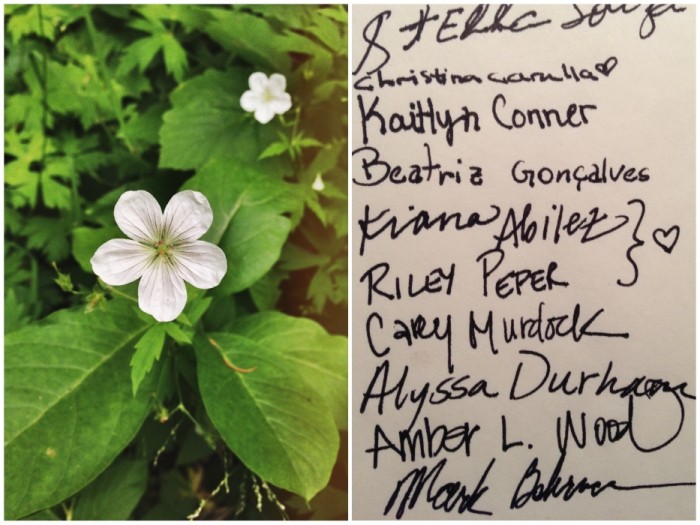 Stella Souza
Christina Carulla♡
Kaitlyn Conner
Beatriz Gonçalves
Kiana Abilez } ♡
RILEY PEPER
Cary Murdock
Alyssa Durham
Amber L. Wood
Mark